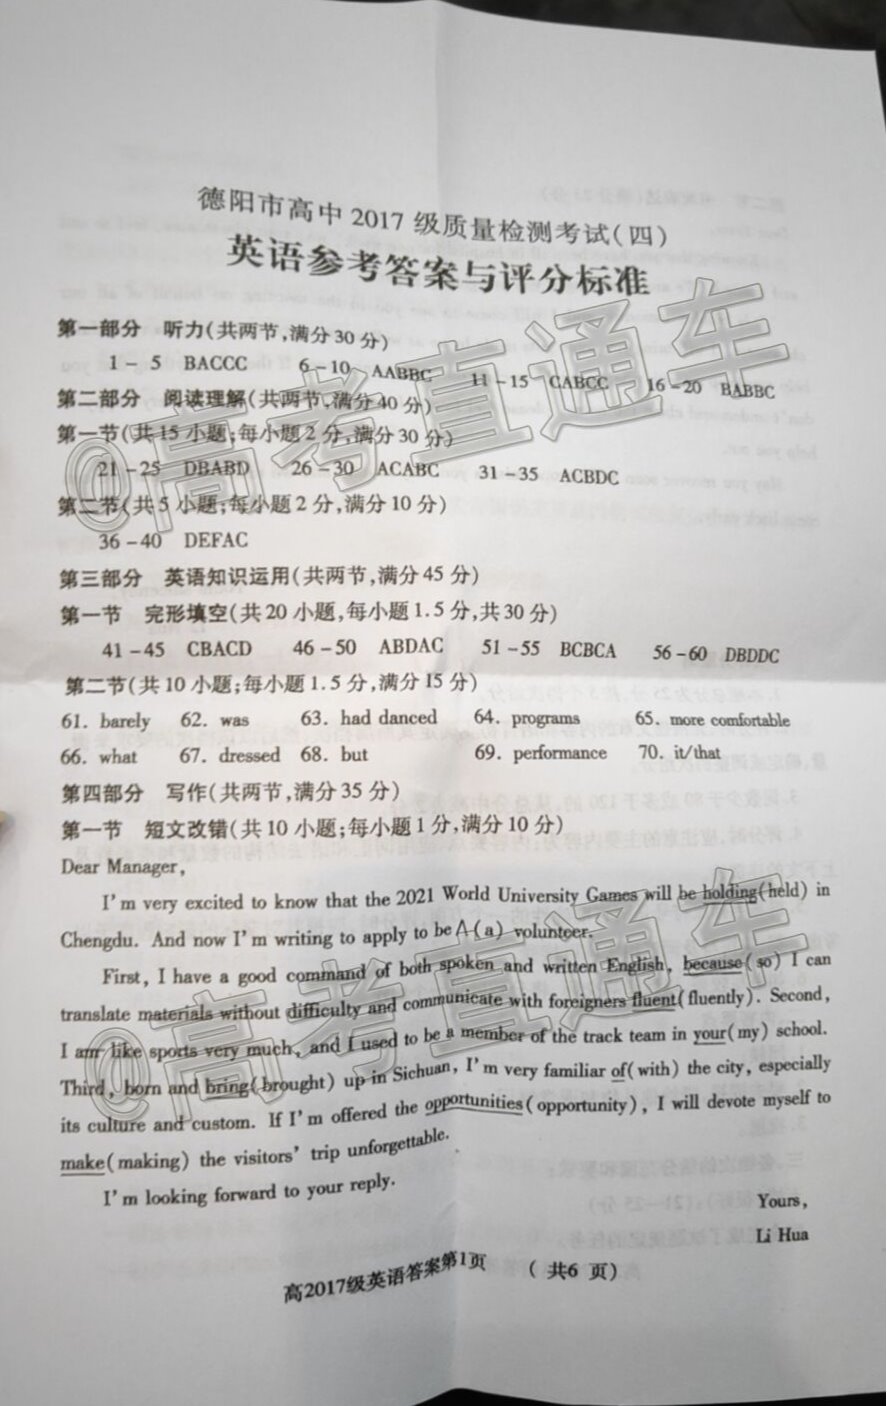 德阳市高中2017级质量检测考试(四)
英语参考答案与评分标准
第一部分 听力(共两节,满分30分)
1-5 BACCC 6-10 AABBC 11-15 CABCC 16-20 BABBC
第二部分 阅读理解(共两节,满分40分)
第一节(共15小题;每小题2分,满分30分)
21-25 DBABD 26-30 ACABC 31-35 ACBDC
第二节(共5小题;每小题2分,满分10分)
36-40 DEFAC
第三部分 英语知识运用(共两节,满分45分)
第一节 完形填空(共20小题,每小题1.5分,共30分)
41-45 CBACD 46-50 ABDAC 51-55 BCBCA 56-60 DBDDC
第二节(共10小题;每小题1.5分,满分15分)
61. barely 62. was 63. had danced 64. programs 65. more comfortable
66. what 67. dressed 68. but 69. performance 70. it/that
第四部分 写作(共两节,满分35分)
第一节 短文改错(共10小题;每小题1分,满分10分)
Dear Manager,
I'm very excited to know that the 2021 World University Games will be holding(held) in
Chengdu. And now I'm writing to apply to be Λ(a) volunteer.
First, I have a good command of both spoken and written English, because(so) I can
translate materials without difficulty and communicate with foreigners fluent(fluently). Second,
I am like sports very much, and I used to be a member of the track team in your(my) school.
Third, born and bring(brought) up in Sichuan, I'm very familiar of(with) the city, especially
its culture and custom. If I'm offered the opportunities(opportunity), I will devote myself to
make(making) the visitors' trip unforgettable.
I'm looking forward to your reply.
Yours,
Li Hua
高2017级英语答案第1页 (共6页)
@高考直通车
@高考直通车